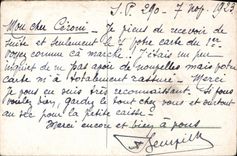 S.P. 290 - 7 nov. 1923
Mon cher Céroni - Je viens de recevoir de
suite et seulement le 7 votre carte du 1er
voyez comme ça marche! J'étais un peu
inquiet de ne pas avoir de nouvelles mais votre
carte m'a totalement rassuré - Merci
je vous en suis très reconnaissant. Si vous
voulez bien, gardez le tout chez vous et surtout
au sec pour la petite caisse.
Merci encore et bien à vous